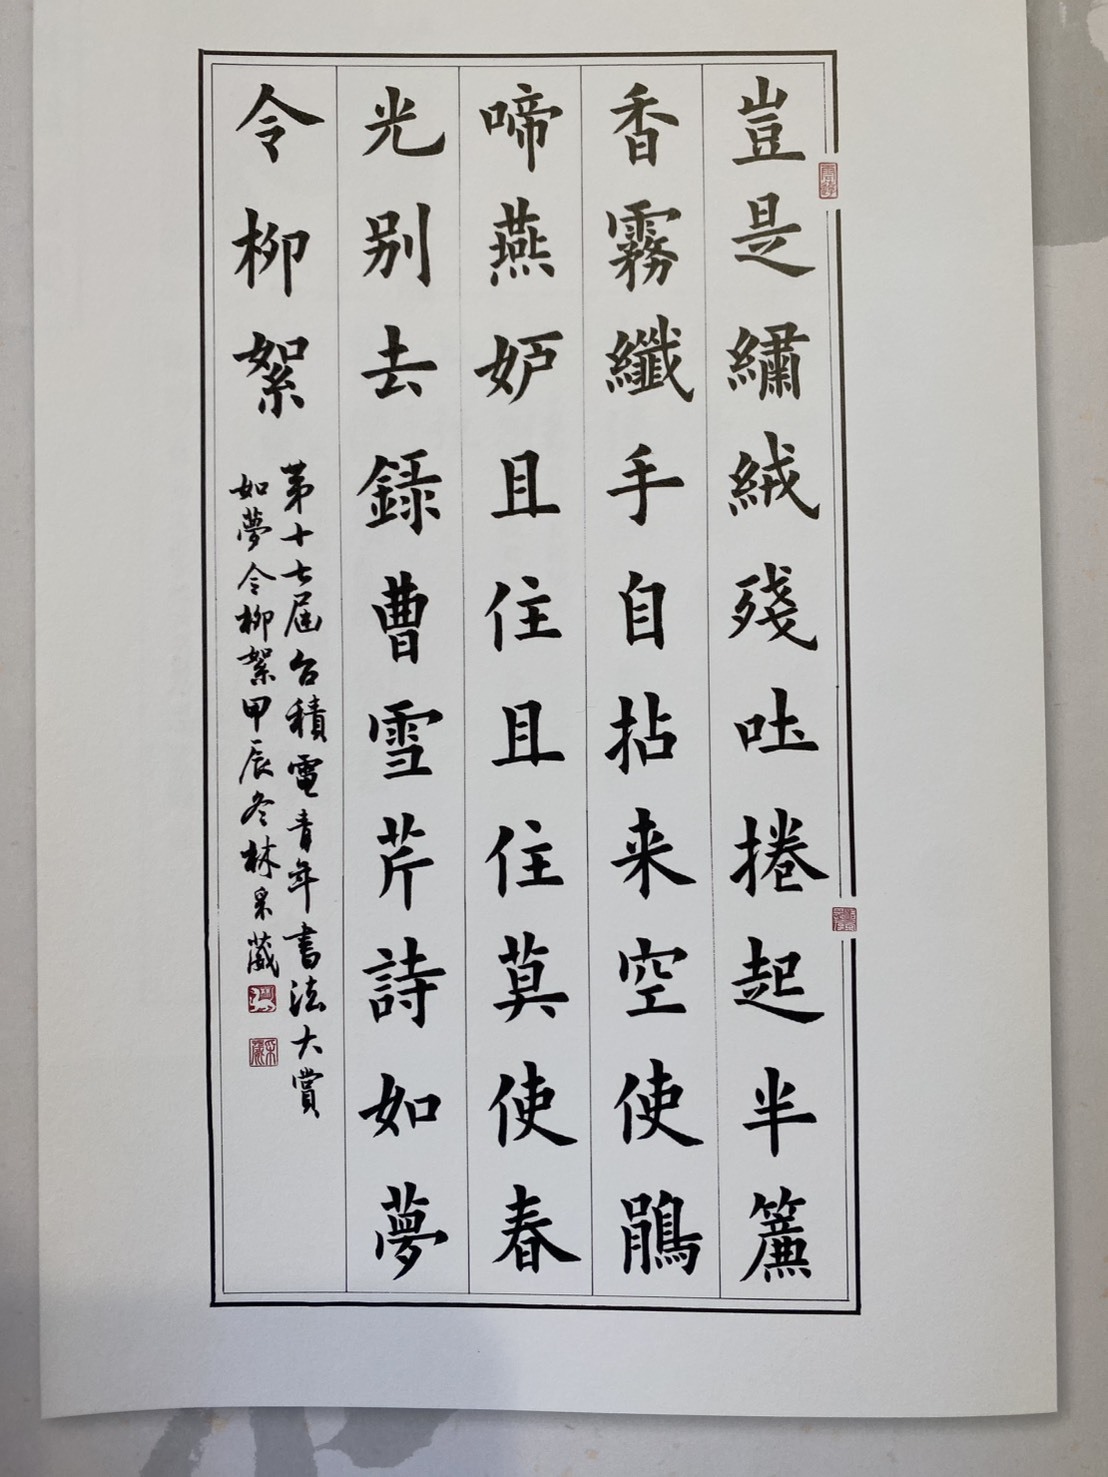 豈是繡絨殘吐捲起半簾
香霧纖手自拈来空使鵑
啼燕妒且住且住莫使春
光別去録曹雪芹詩如夢
令柳絮
第十七届台積電青年書法大賞
如夢令柳絮甲辰冬林采葳